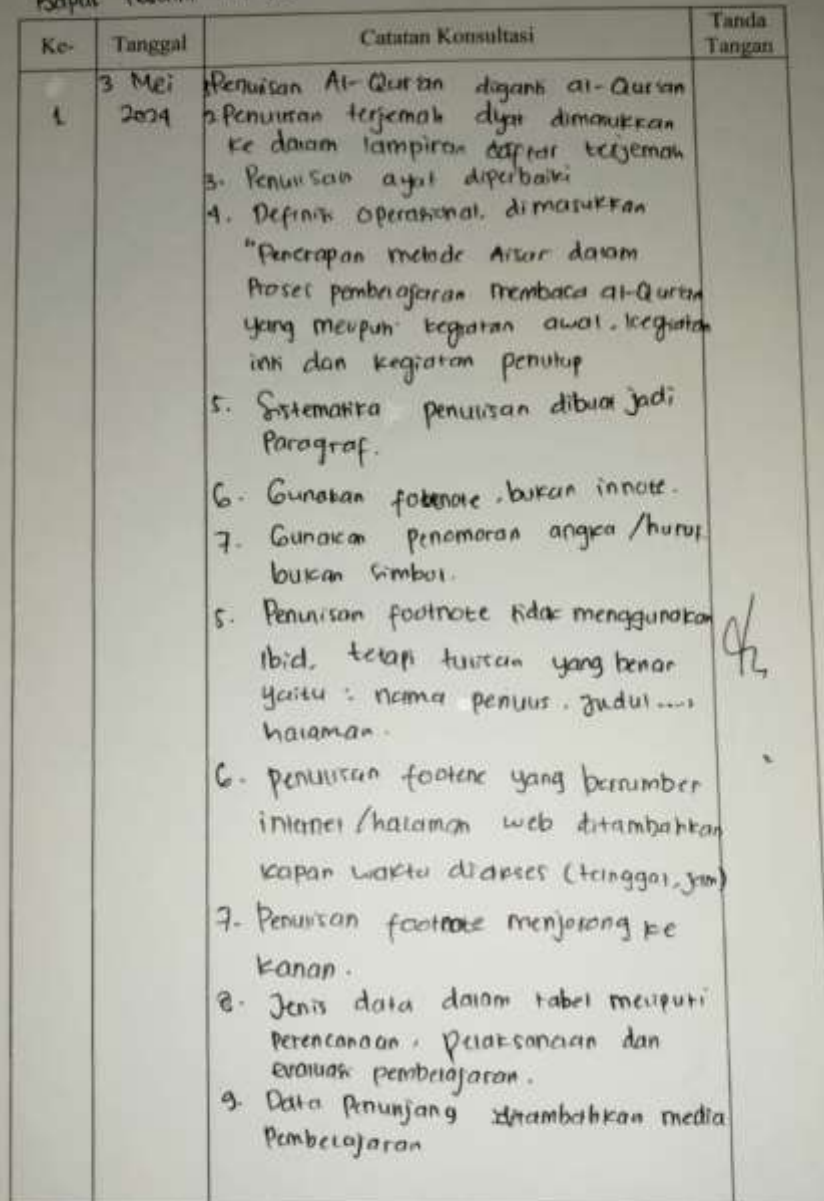 Bapak
Ke- Tanggal Catatan Konsultasi Tanda Tangan
1 3 Mei 2024
1. Penulisan Al-Qur'an diganti al-Qur'an
2. Penulisan terjemah ayat dimasukkan
ke dalam lampiran daftar terjemah
3. Penulisan ayat diperbaiki
4. Definisi operasional. dimasukkan
"Penerapan metode Aisar dalam
Proses pembelajaran membaca al-Qur'an
yang meliputi kegiatan awal, kegiatan
inti dan kegiatan penutup
5. Sistematika penulisan dibuat jadi
Paragraf.
6. Gunakan footnote, bukan innote.
7. Gunakan penomoran angka/huruf
bukan simbol.
5. Penulisan footnote tidak menggunakan
Ibid, tetapi tulisan yang benar
yaitu : nama penulis. Judul ....,
halaman.
6. penulisan footenc yang bersumber
internet/halaman web ditambahkan
kapan waktu diakses (tanggal, jam)
7. Penulisan footnote menjorong ke
kanan.
8. Jenis data dalam tabel meliputi
perencanaan, pelaksanaan dan
evaluasi pembelajaran.
9. Data Penunjang ditambahkan media
Pembelajaran